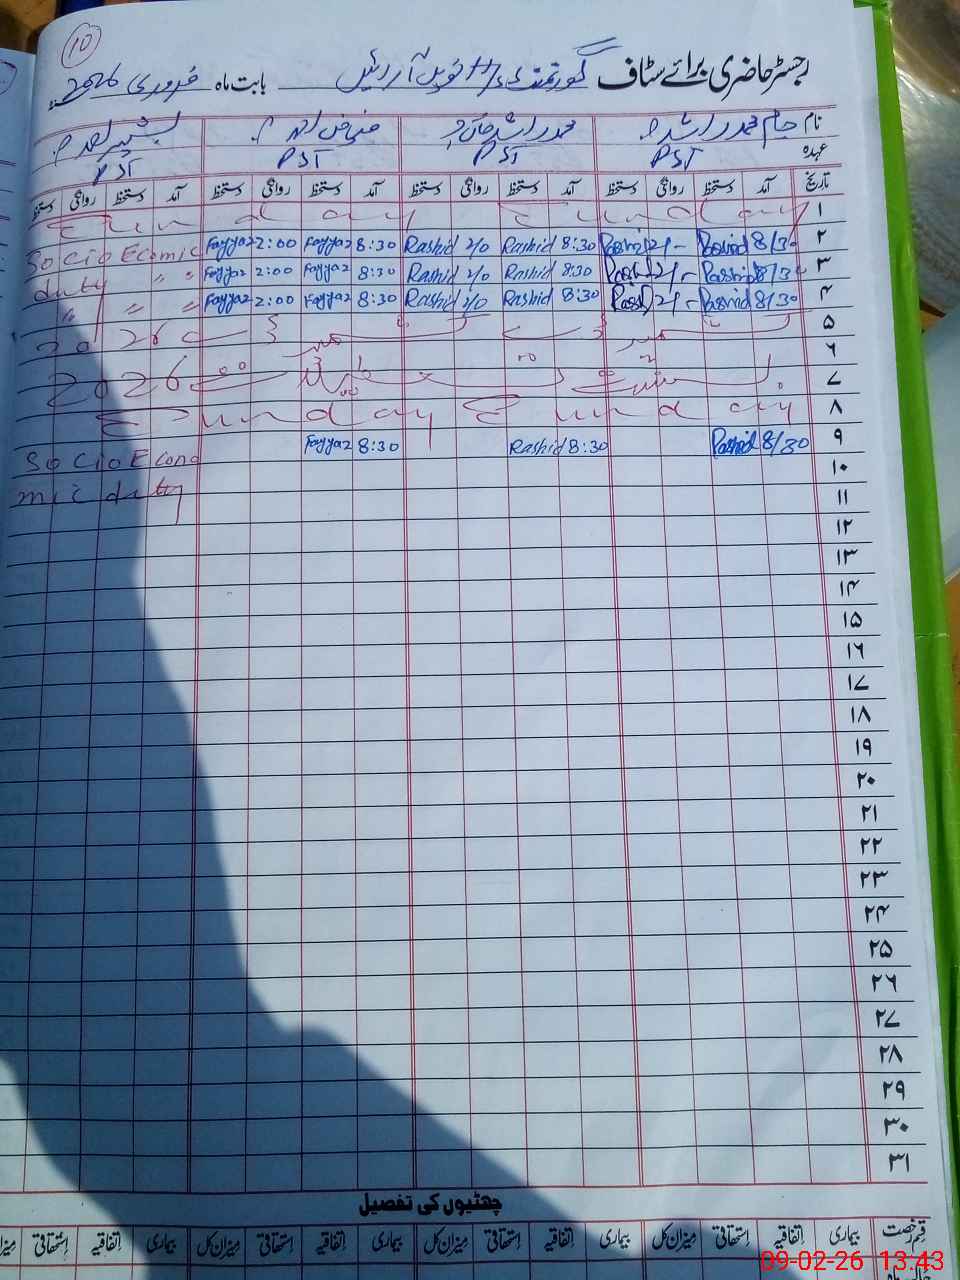 10
رجسٹر حاضری برائے سٹاف گورنمنٹ بابت ماہ فروری 2026ء
نام جام محمد راشد محمد راشد خان فیاض احمد بشیر احمد
عہدہ PST PST PST PST
تاریخ آمد دستخط روانگی دستخط آمد دستخط روانگی دستخط آمد دستخط روانگی دستخط آمد دستخط روانگی دستخط
۱ Sunday Sunday
۲ 8/30 Rashid 2/- Rashid 8:30 Rashid 2/0 Rashid 8:30 Fayyaz 2:00 Fayyaz Socio Ecomic
۳ 8/30 Rashid 2/- Rashid 8:30 Rashid 2/0 Rashid 8:30 Fayyaz 2:00 Fayyaz duty " "
۴ 8/30 Rashid 2/- Rashid 8:30 Rashid 2/0 Rashid 8:30 Fayyaz 2:00 Fayyaz " " "
۵ 2026
۶
۷ 2026
۸ Sunday Sunday
۹ 8/30 Rashid 8:30 Rashid 8:30 Fayyaz Socio Econo
۱۰ mic duty
۱۱
۱۲
۱۳
۱۴
۱۵
۱۶
۱۷
۱۸
۱۹
۲۰
۲۱
۲۲
۲۳
۲۴
۲۵
۲۶
۲۷
۲۸
۲۹
۳۰
۳۱
چھٹیوں کی تفصیل
قسم رخصت بیماری اتفاقیہ استحقاقی میزان کل بیماری اتفاقیہ استحقاقی میزان کل بیماری اتفاقیہ استحقاقی میزان کل بیماری اتفاقیہ استحقاقی میزان
09-02-26 13:43